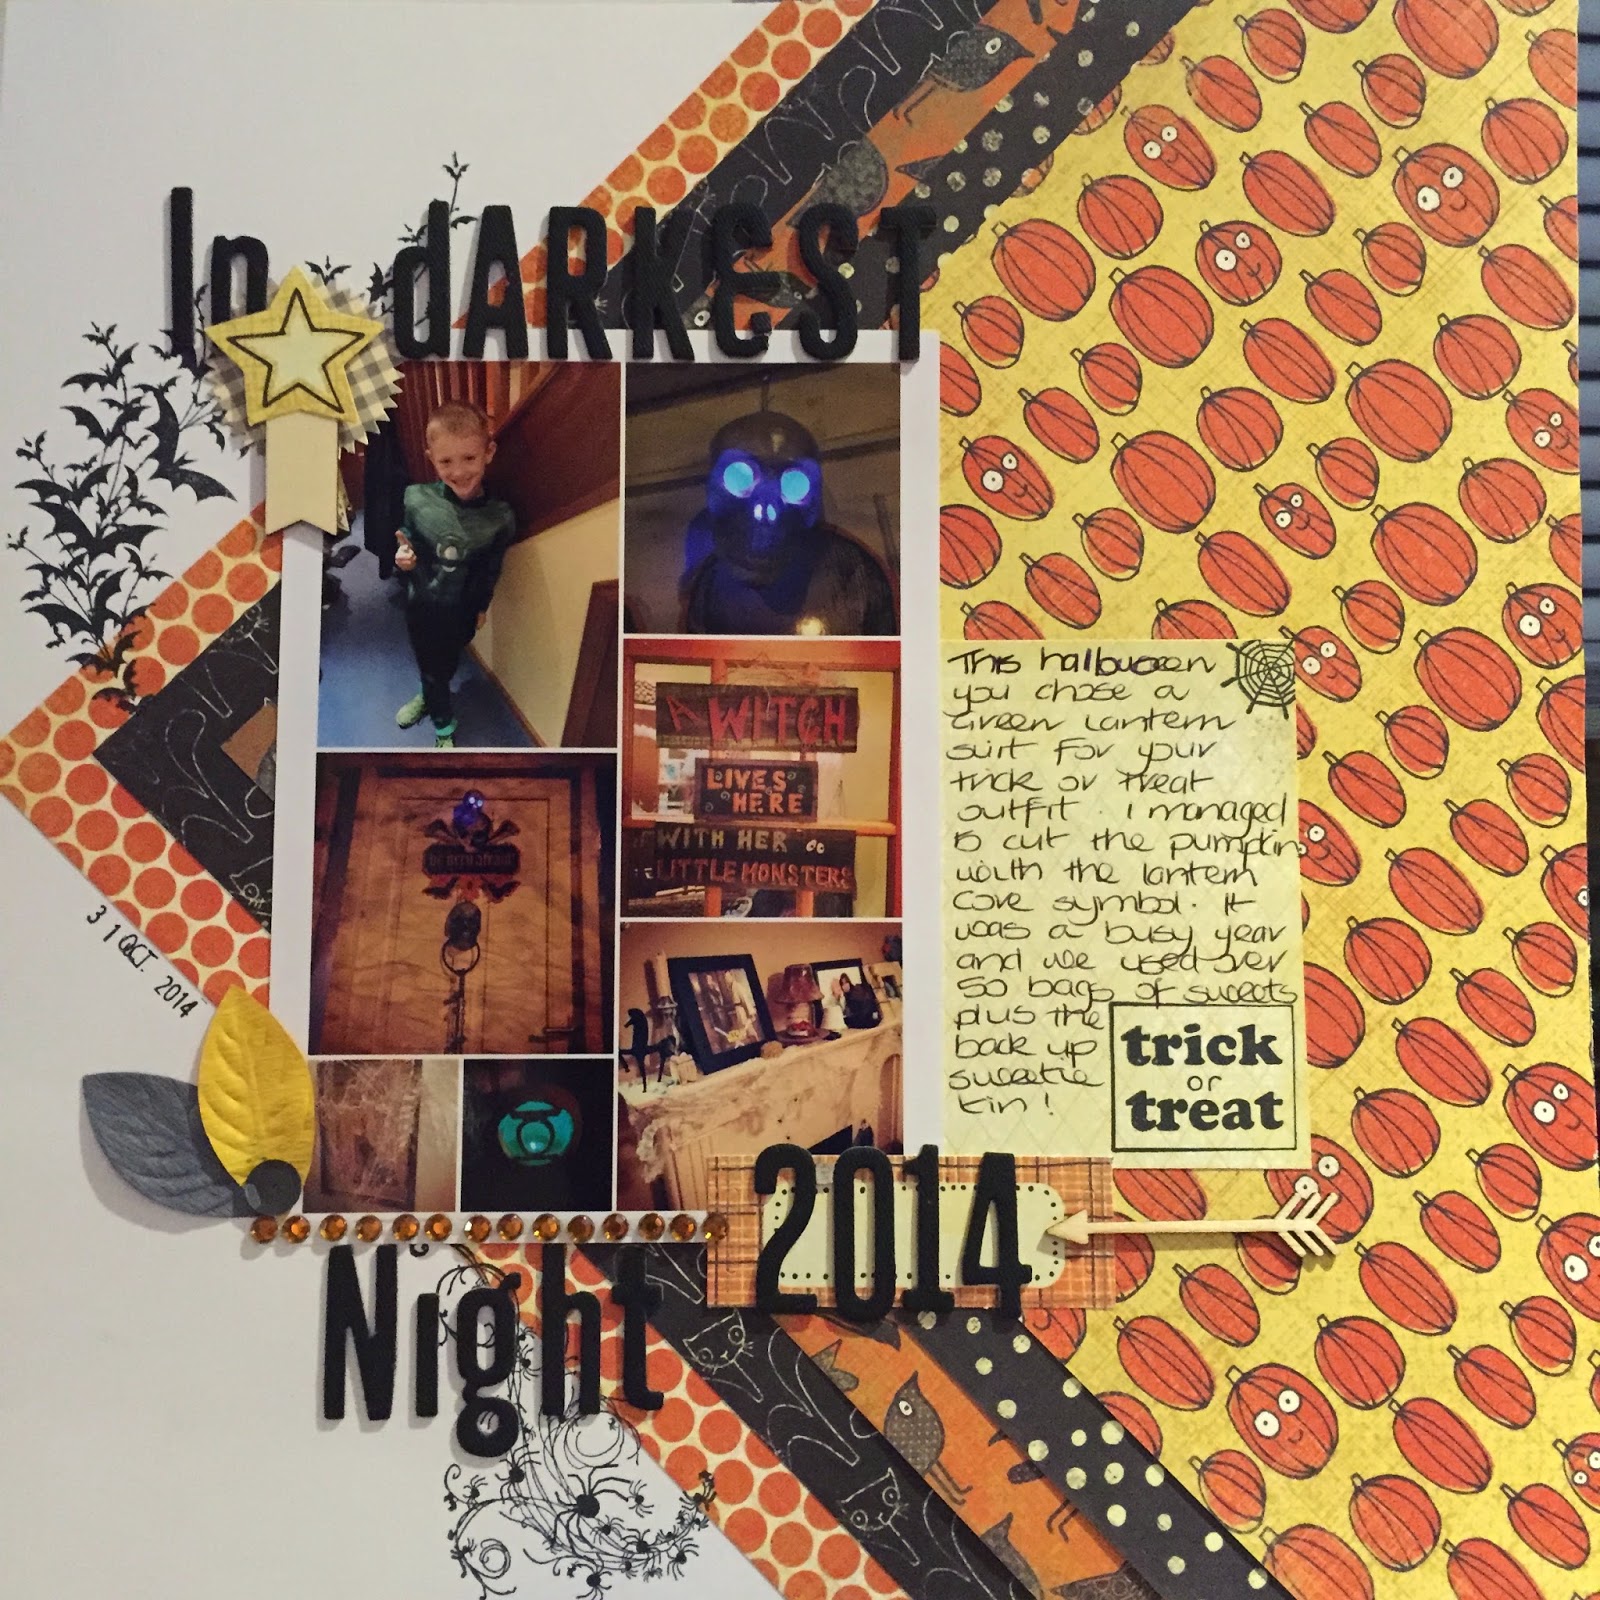 In dARKEST
A WITCH
LIVES
HERE
WITH HER
LITTLE MONSTERS
be very afraid
This halloween
you chose a
Green Lantern
suit for your
trick or treat
outfit. I managed
to cut the pumpkin
with the lantern
core symbol. It
was a busy year
and we used over
50 bags of sweets
plus the
back up
sweetie
tin!
trick
or
treat
31 OCT. 2014
2014
Night